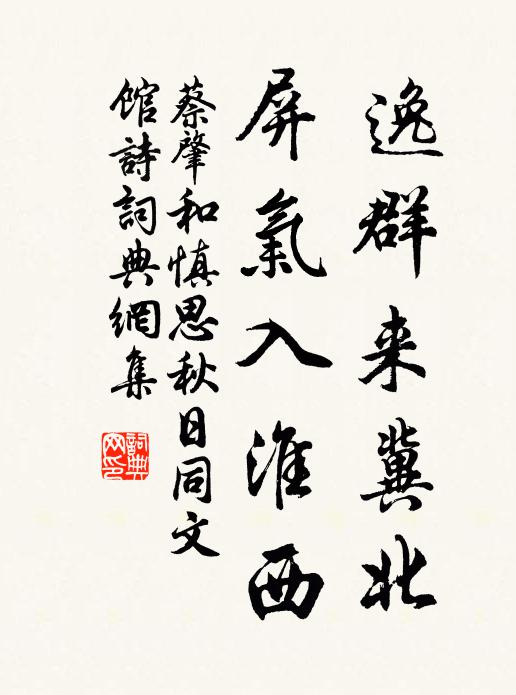 逸群来冀北
屏氣入淮西
蔡肇和慎思秋日同文
館詩詞典網集
詞典网印